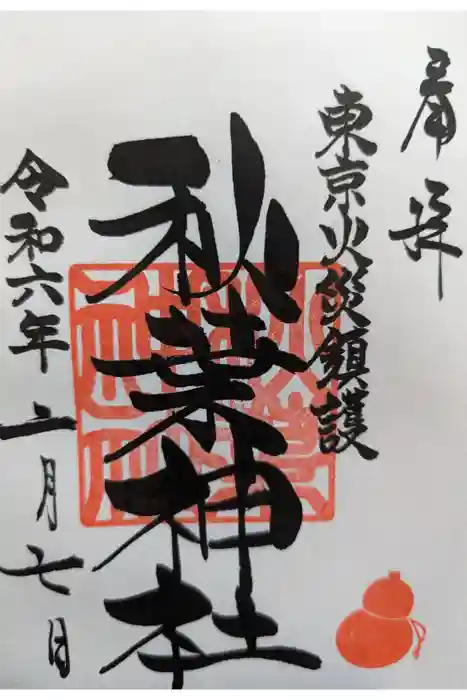 奉拝
東京火災鎮護
秋葉神社
令和六年二月七日